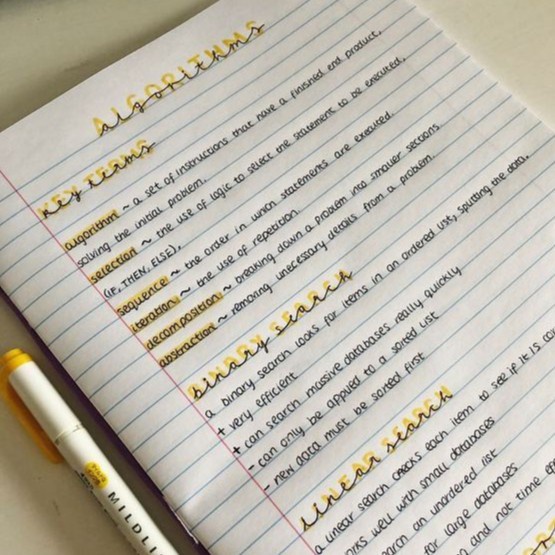 ALGORITHMS
algorithms
KEY TERMS
key terms
algorithm ~ a set of instructions that have a finished end product,
solving the initial problem.
selection ~ the use of logic to select the statement to be executed.
(IF, THEN, ELSE).
sequence ~ the order in which statements are executed
iteration ~ the use of repetition
decomposition ~ breaking down a problem into smaller sections
abstraction ~ removing unnecessary details from a problem.
BINARY SEARCH
binary search
a binary search looks for items in an ordered list, splitting the data.
+ very efficient
+ can search massive databases really quickly
- can only be applied to a sorted list
- new data must be sorted first
LINEAR SEARCH
linear search
a linear search checks each item to see if it is
well with small databases
an unordered list
for large databases
and not time
MILDLI